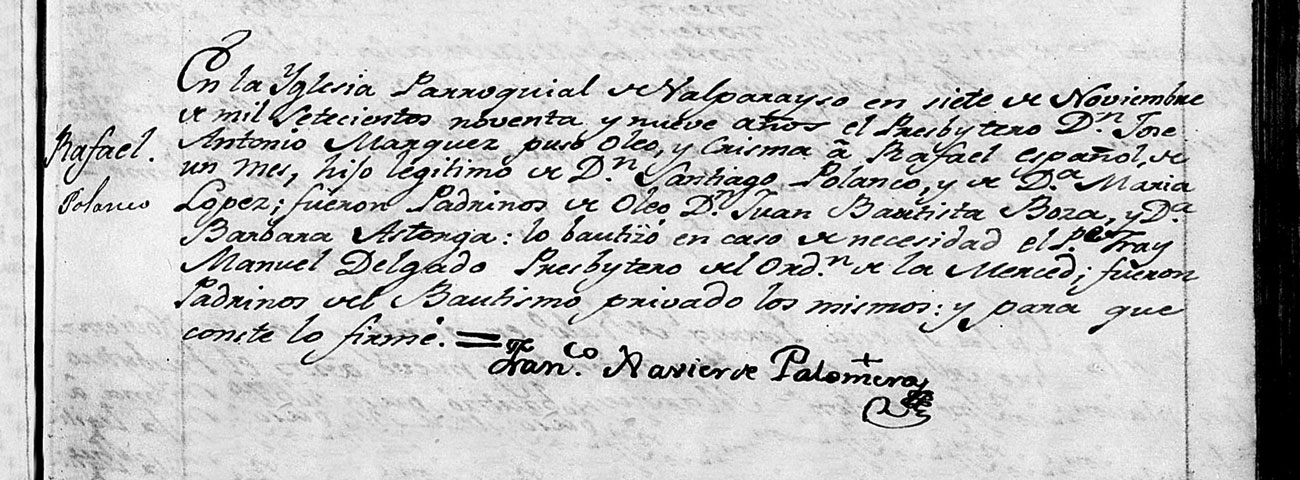 Rafael.
Polanco
En la Yglesia Parroquial de Valparayso en siete de Noviembre
de mil Setecientos noventa y nueve años el Presbytero D.n Jose
Antonio Marquez puso Oleo, y Crisma â Rafael español, de
un mes, hijo legitimo de D.n Santiago Polanco, y de D.a Maria
Lopez; fueron Padrinos de Oleo D.n Juan Bautista Boza, y D.a
Barbara Astorga: lo bautizó en caso de necesidad el P.e Fray
Manuel Delgado Presbytero del Ord.n de la Merced; fueron
Padrinos del Bautismo privado los mismos: y para que
conste lo firmé. =
Fran.co Xavier de Palomera